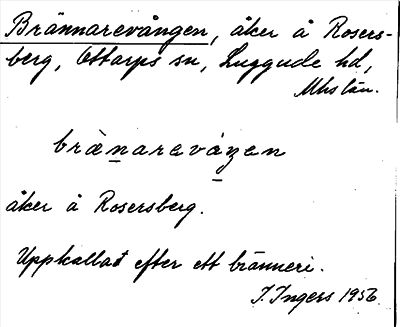 Brännarevången, åker å Rosers-
berg, Ottarps sn, Luggude hd,
Mhs län.
brànarevåŋen
åker å Rosersberg.
Uppkallad efter ett bränneri.
I. Ingers 1956.